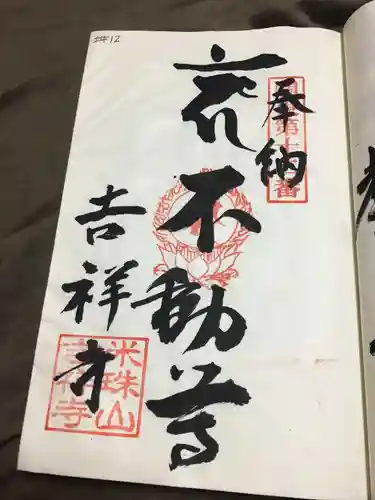 #12
奉納
荒不動尊
吉祥寺
米珠山
吉祥寺